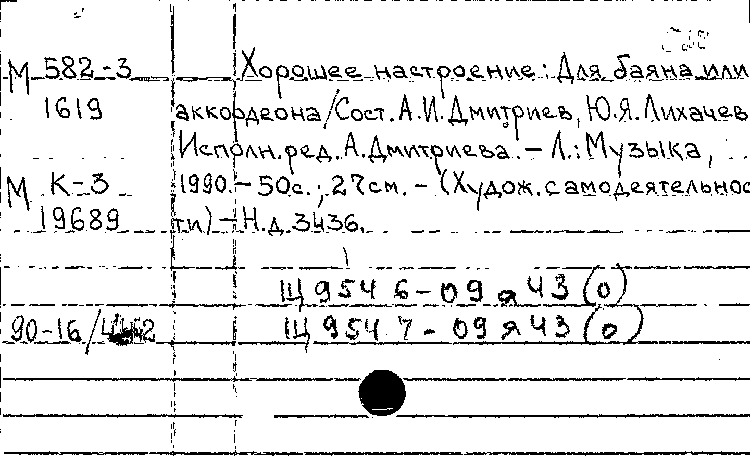 М 582-3 Хорошее настроение: Для баяна или
1619 аккордеона/Сост. А.И.Дмитриев, Ю.Я.Лихачев
Исполн. ред. А.Дмитриева. - Л.: Музыка,
М К-3 1990. - 50с.; 27см. - (Худож. самодеятельнос
19689 ти) - Н.д. 3436.
Щ 954 6-09 я 43 (0)
90-16/ Щ 954 7-09 я 43 (0)